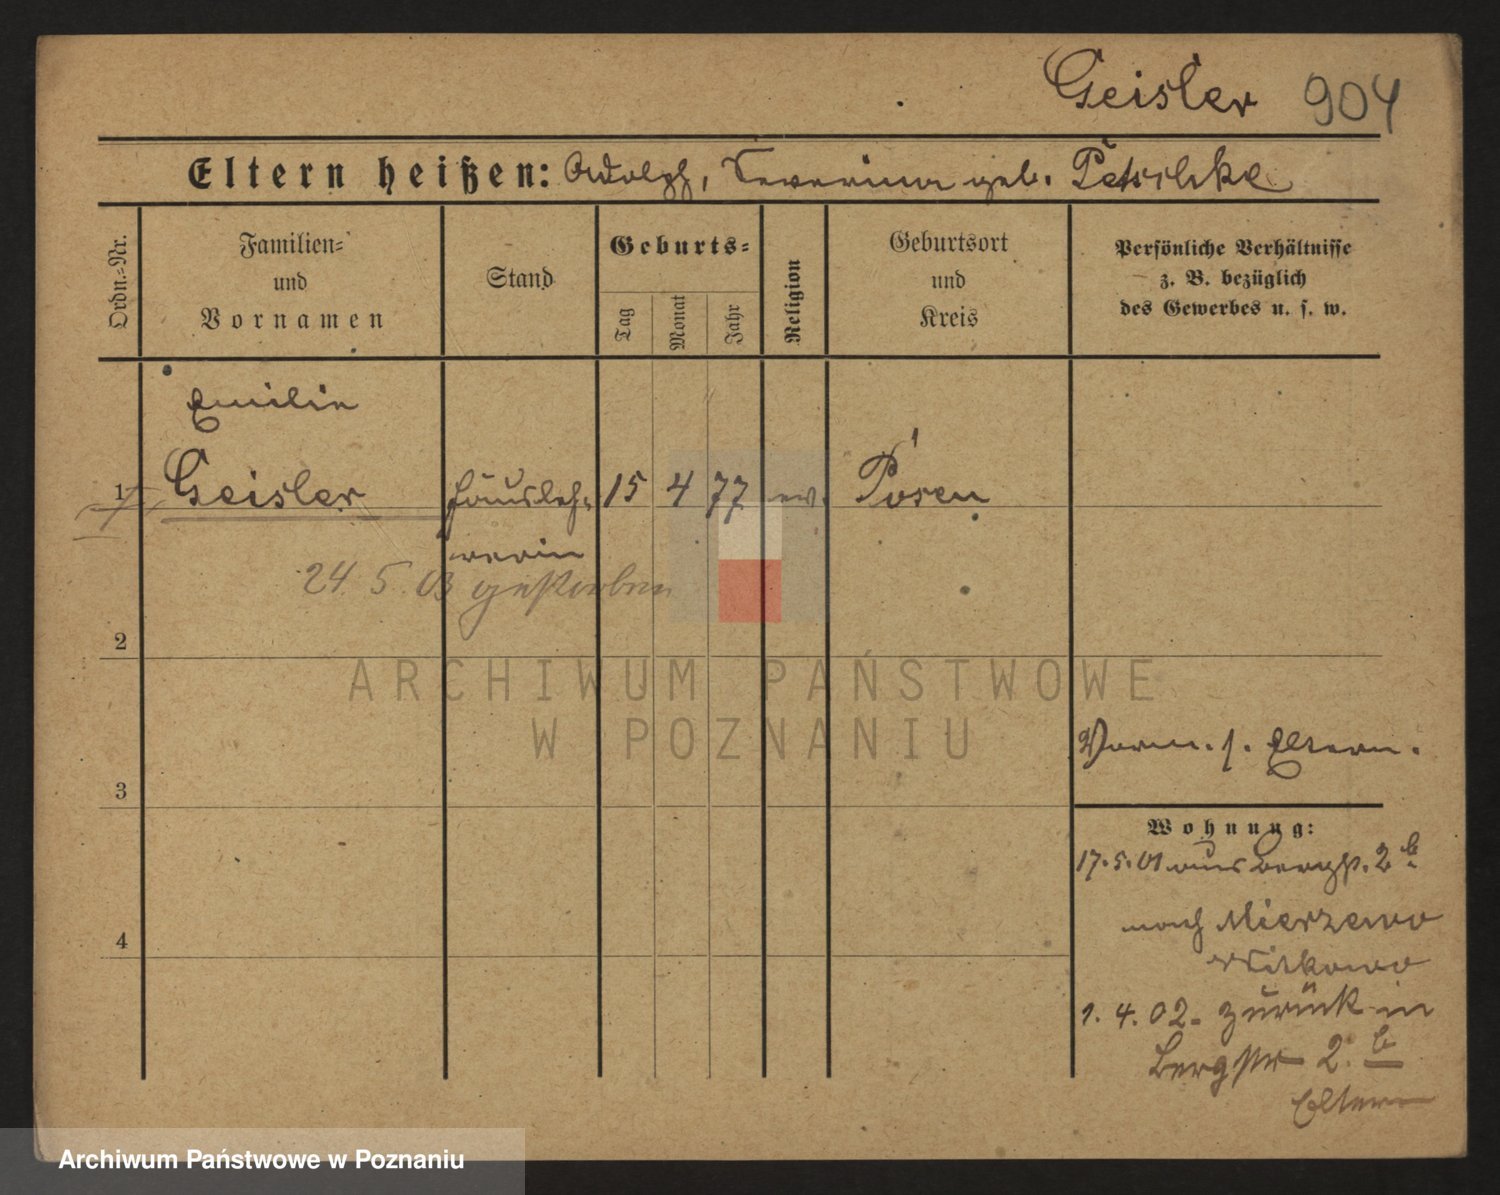 Geisler 904
Eltern heißen: Adolph, Severina geb. Petschke
Ordn.-Nr.
Familien-
und
Vornamen
Stand
Geburts-
Tag
Monat
Jahr
Religion
Geburtsort
und
Kreis
Persönliche Verhältnisse
z. B. bezüglich
des Gewerbes u. s. w.
Emilie
1 Geisler Hausleh- 15 4 77 ev. Posen
rerin
24. 5. 03 gestorben
2
ARCHIWUM PAŃSTWOWE
W POZNANIU
Verm. s. Eltern.
3
Wohnung:
17.5.01 aus Bergstr. 2 b
nach Mierzewo
Witkowo
4
1. 4. 02. zurück in
Bergstr 2. b
Eltern
Archiwum Państwowe w Poznaniu